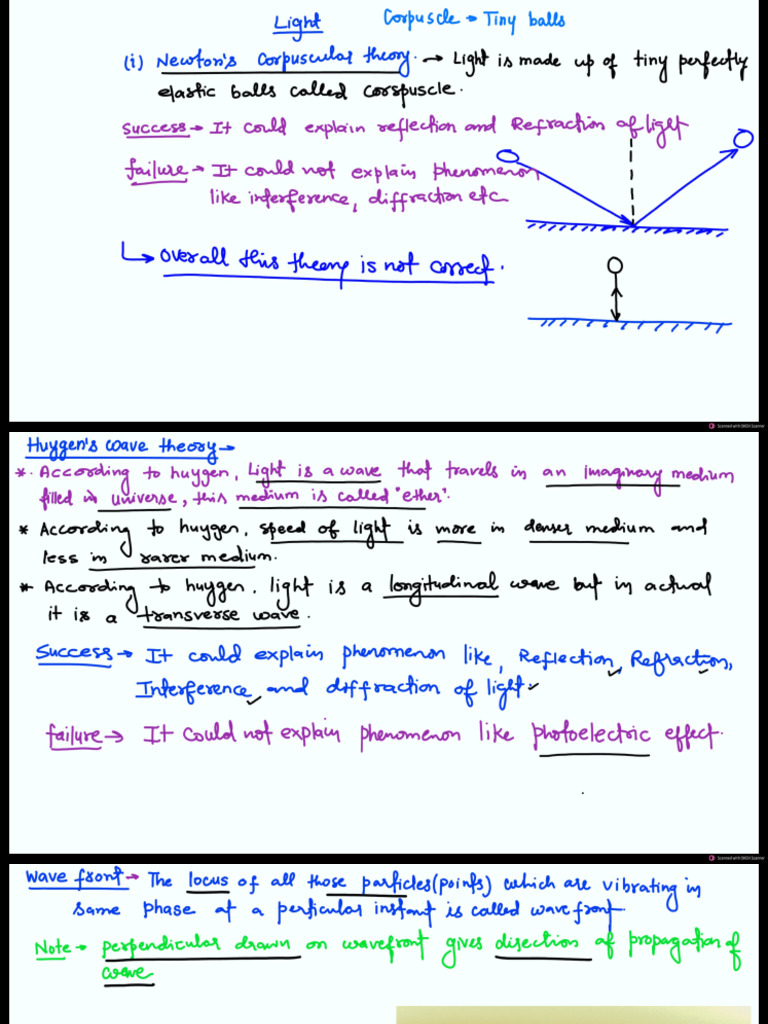 Light
Corpuscle → Tiny balls
(i) Newton's Corpuscular theory. → Light is made up of tiny perfectly
elastic balls called corspuscle.
success → It could explain reflection and Refraction of light
failure → It could not explain phenomenon
like interference, diffraction etc
↳ overall this theory is not correct.
Scanned with OKEN Scanner
Huygen's wave theory →
*. According to huygen, Light is a wave that travels in an imaginary medium
filled in universe, this medium is called "ether".
* According to huygen, speed of light is more in denser medium and
less in rarer medium.
* According to huygen, light is a longitudinal wave but in actual
it is a transverse wave.
Success → It could explain phenomenon like, Reflection, Refraction,
Interference and diffraction of light
failure → It could not explain phenomenon like photoelectric effect.
Scanned with OKEN Scanner
Wave front → The locus of all those particles (points) which are vibrating in
same phase at a perticular instant is called wavefront.
Note → perpendicular drawn on wavefront gives direction of propagation of
wave